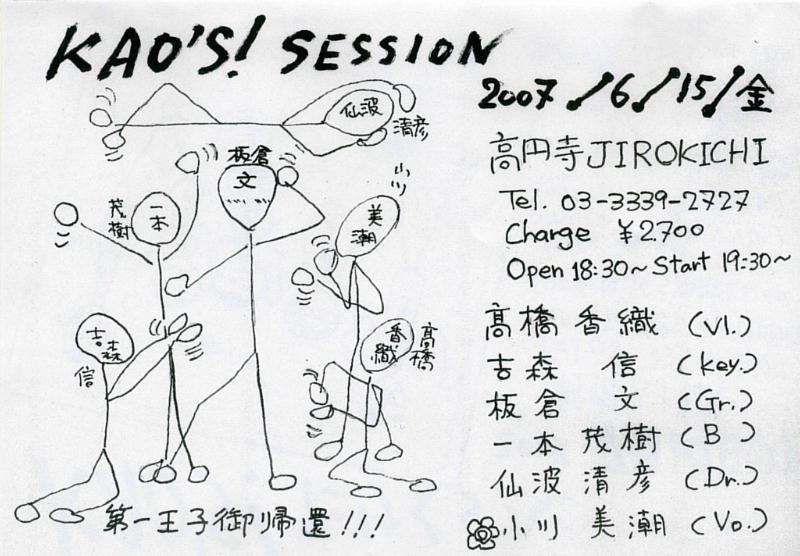 KAO'S! SESSION
2007/6/15/金
高円寺JIROKICHI
Tel. 03-3339-2727
Charge ¥2700
Open 18:30~ Start 19:30~
髙橋 香織 (Vl.)
古森 信 (key.)
板倉 文 (Gr.)
一本茂樹 (B)
仙波 清彦 (Dr.)
小川 美潮 (Vo.)
仙波
清彦
板倉
文
茂樹
一本
小川
美潮
古森
信
香織
髙橋
第一王子御帰還!!!